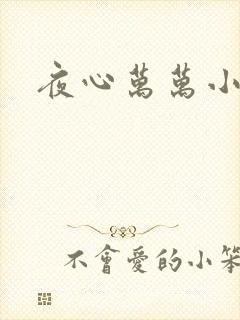 夜心萬萬小
不會愛的小笨